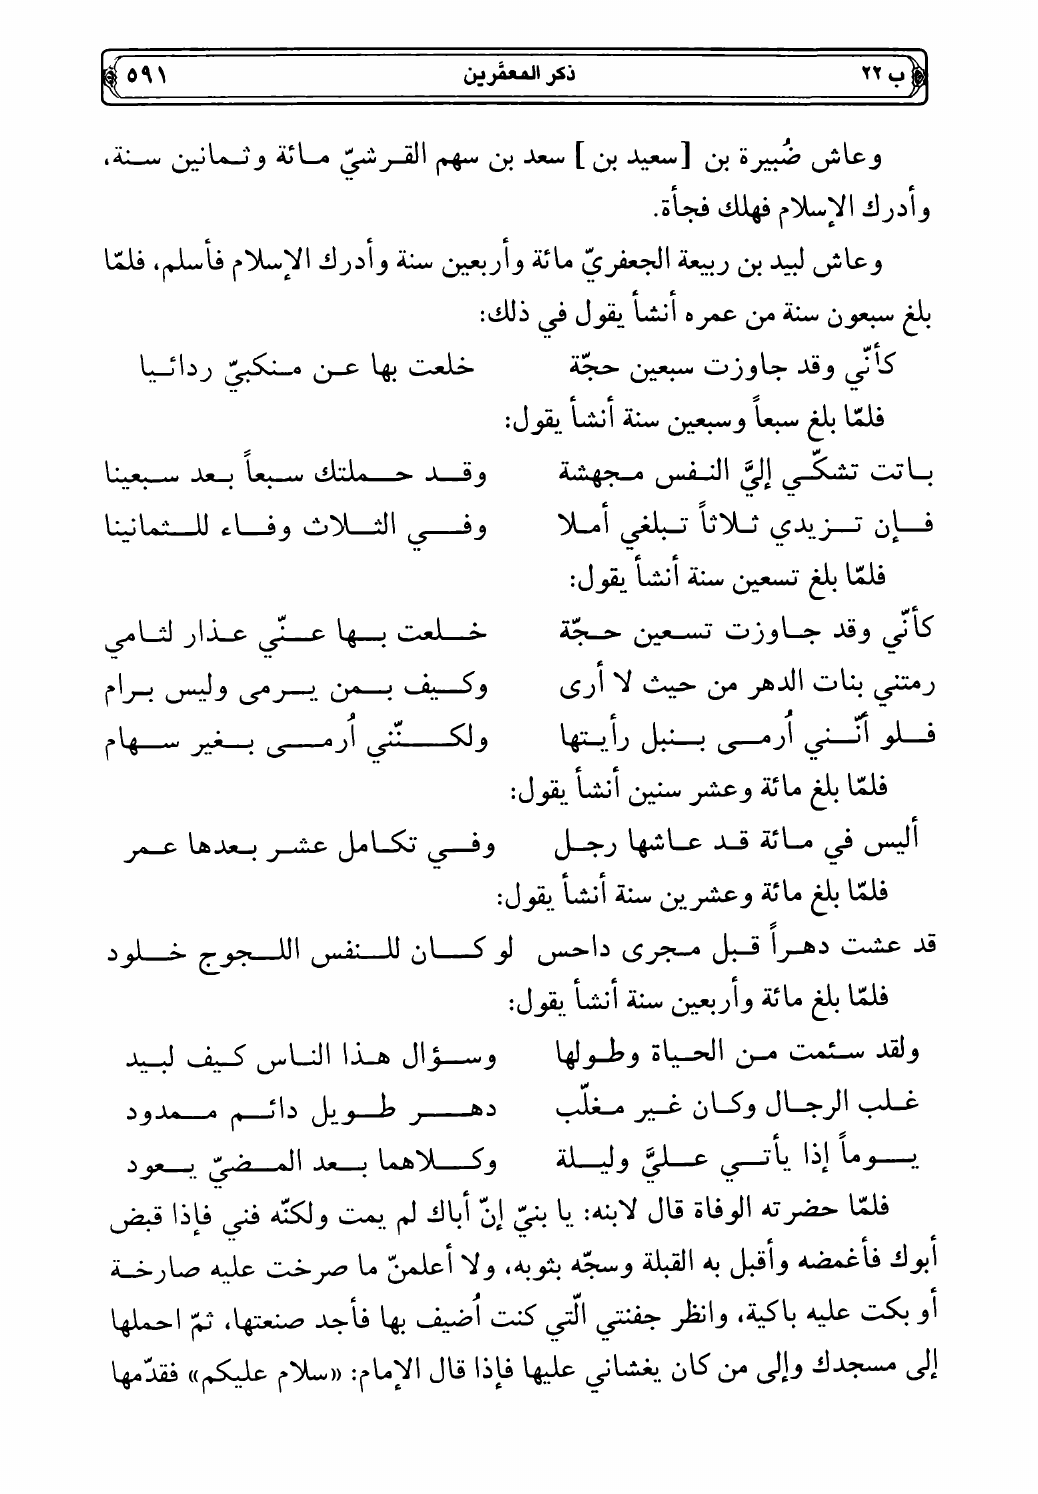 ب ٢٢ ذكر المعمَّرين ٥٩١
وعاش ضُبيرة بن [سعيد بن] سعد بن سهم القرشيّ مائة وثمانين سنة،
وأدرك الإسلام فهلك فجأة.
وعاش لبيد بن ربيعة الجعفريّ مائة وأربعين سنة وأدرك الإسلام فأسلم، فلمّا
بلغ سبعون سنة من عمره أنشأ يقول في ذلك:
كأنّي وقد جاوزت سبعين حجّة خلعت بها عن منكبيّ ردائيا
فلمّا بلغ سبعاً وسبعين سنة أنشأ يقول:
باتت تشكّي إليَّ النفس مجهشة وقد حملتك سبعاً بعد سبعينا
فإن تزيدي ثلاثاً تبلغي أملا وفي الثلاث وفاء للثمانينا
فلمّا بلغ تسعين سنة أنشأ يقول:
كأنّي وقد جاوزت تسعين حجّة خلعت بها عنّي عذار لثامي
رمتني بنات الدهر من حيث لا أرى وكيف بمن يرمى وليس برام
فلو أنّني اُرمى بنبل رأيتها ولكنّني اُرمى بغير سهام
فلمّا بلغ مائة وعشر سنين أنشأ يقول:
أليس في مائة قد عاشها رجل وفي تكامل عشر بعدها عمر
فلمّا بلغ مائة وعشرين سنة أنشأ يقول:
قد عشت دهراً قبل مجرى داحس لو كان للنفس اللجوج خلود
فلمّا بلغ مائة وأربعين سنة أنشأ يقول:
ولقد سئمت من الحياة وطولها وسؤال هذا الناس كيف لبيد
غلب الرجال وكان غير مغلّب دهر طويل دائم ممدود
يوماً إذا يأتي عليَّ وليلة وكلاهما بعد المضيّ يعود
فلمّا حضرته الوفاة قال لابنه: يا بنيّ إنّ أباك لم يمت ولكنّه فني فإذا قبض
أبوك فأغمضه وأقبل به القبلة وسجّه بثوبه، ولا أعلمنّ ما صرخت عليه صارخة
أو بكت عليه باكية، وانظر جفنتي الّتي كنت اُضيف بها فأجد صنعتها، ثمّ احملها
إلى مسجدك وإلى من كان يغشاني عليها فإذا قال الإمام: «سلام عليكم» فقدّمها